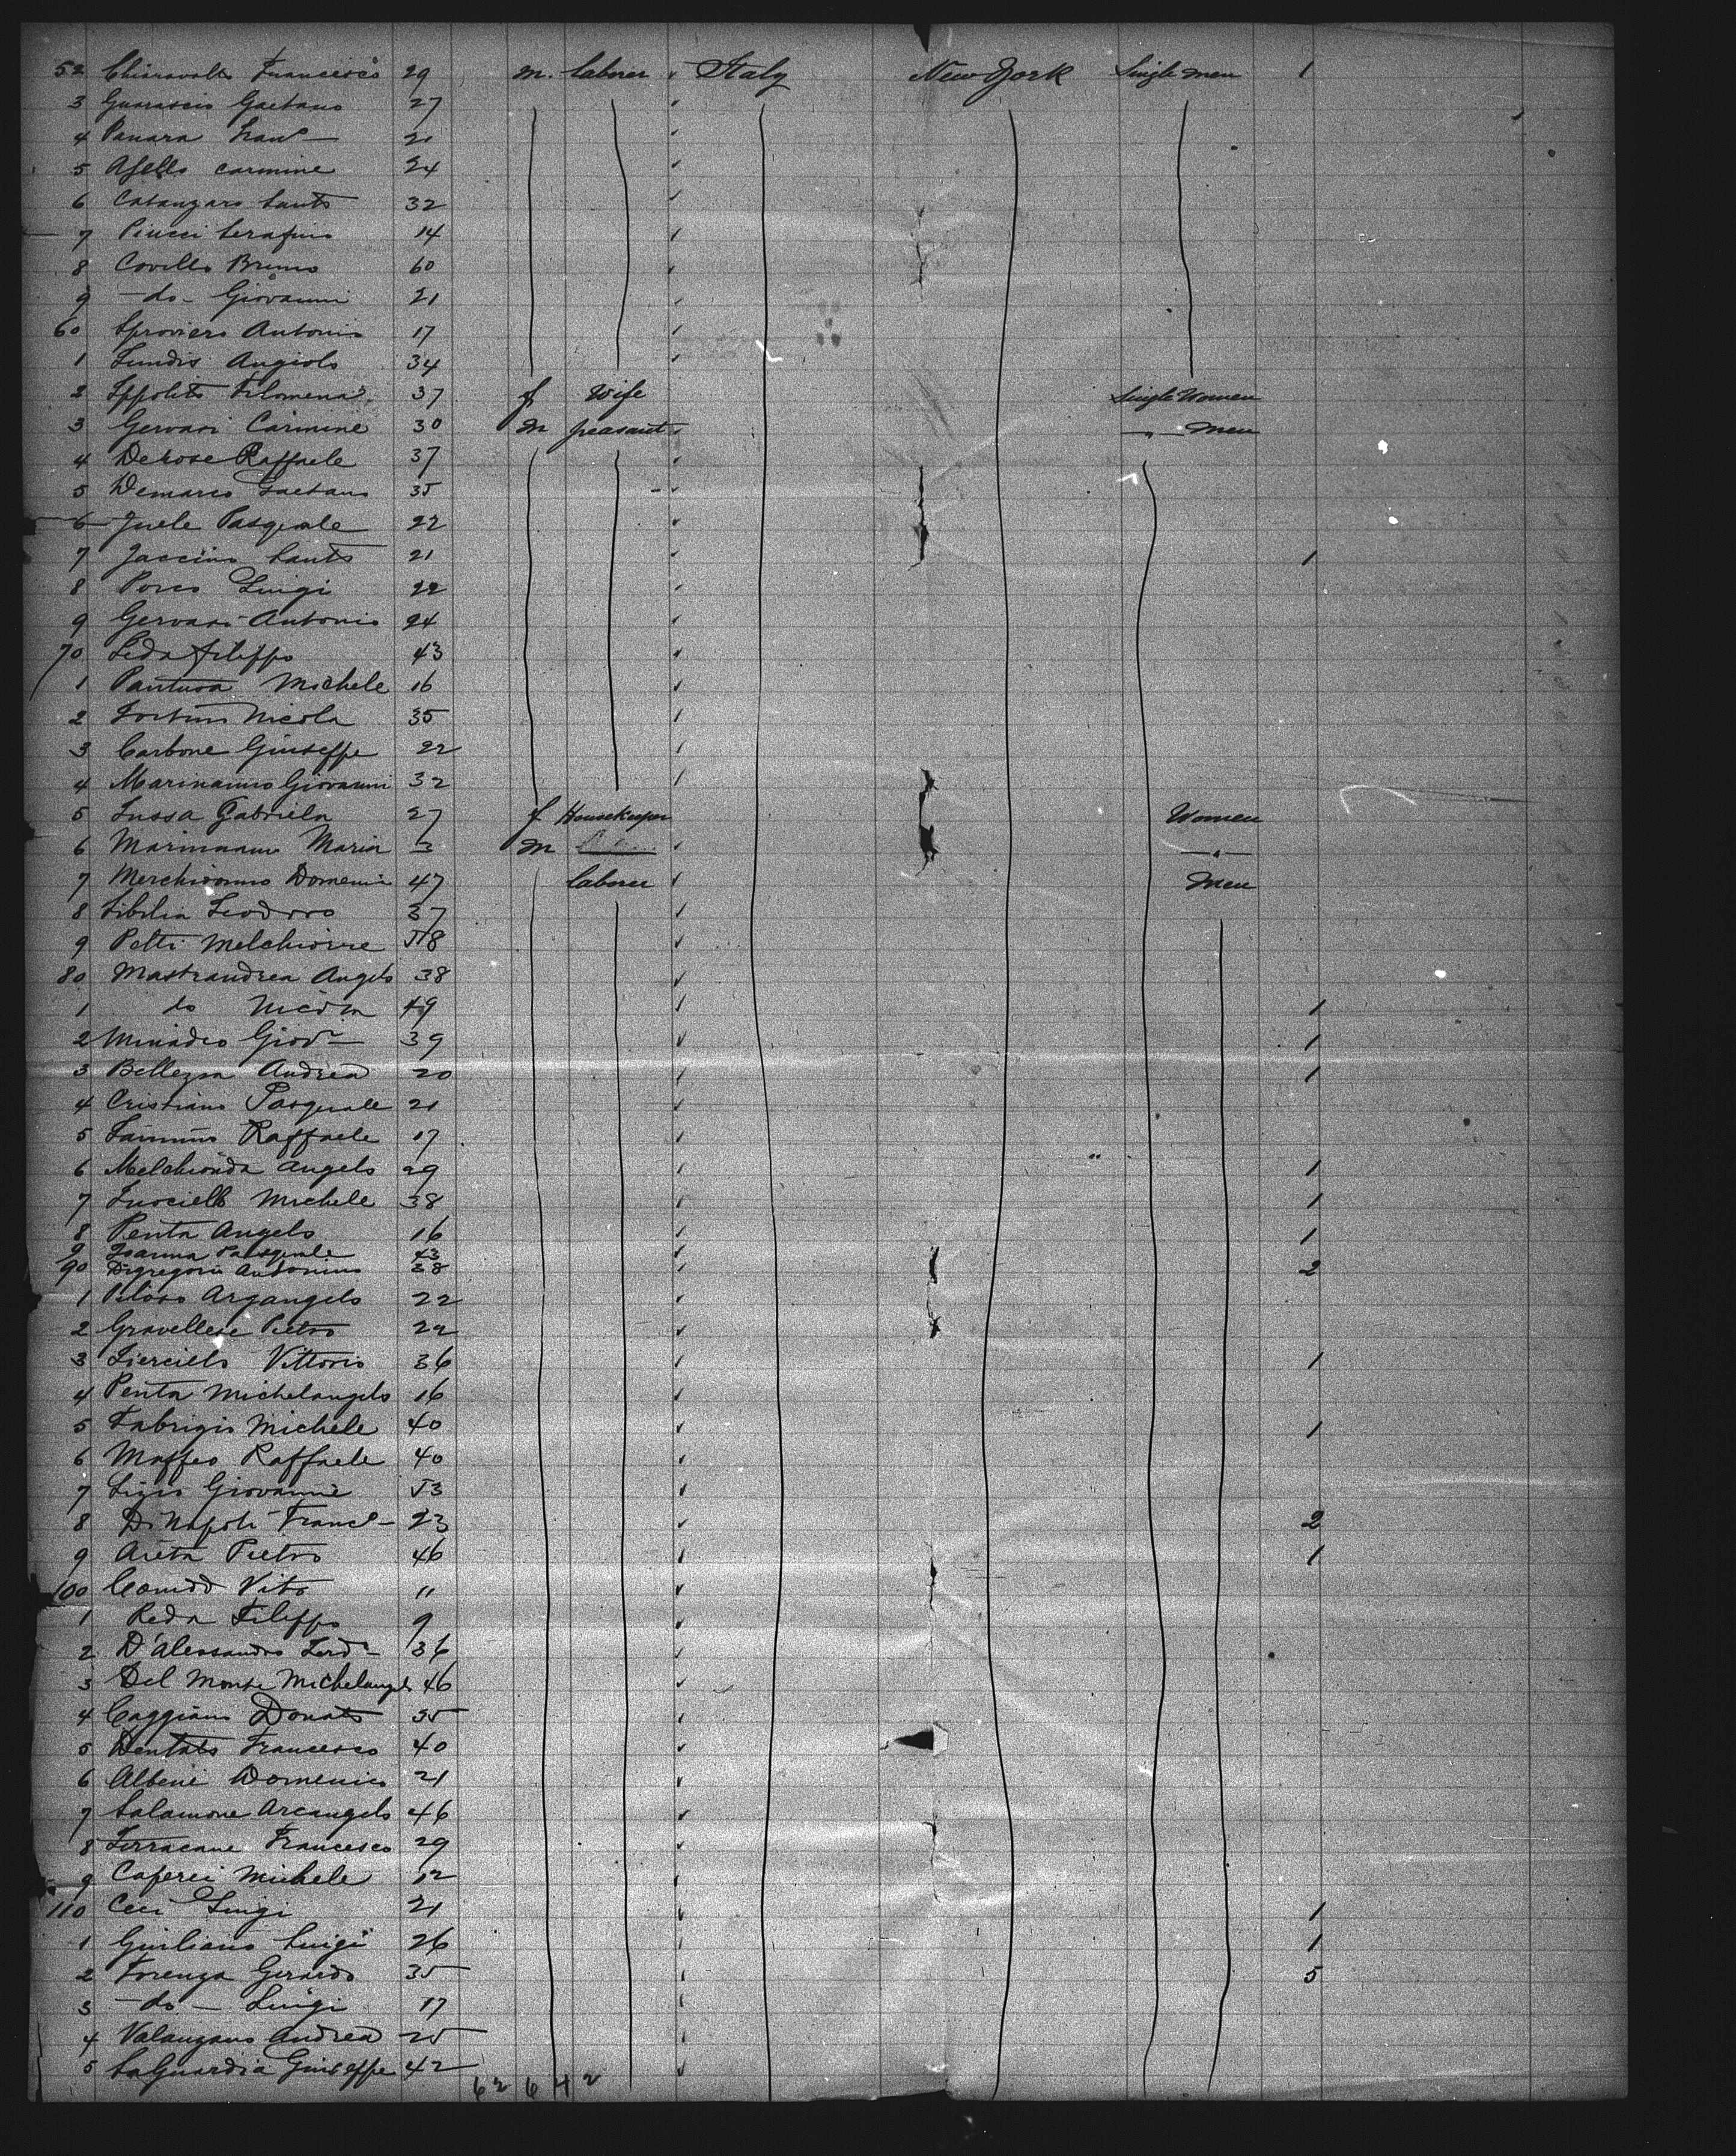 52 Chiaravalls Francesco 29 m. laborer Italy New York Single men 1
3 Guarascio Gaetano 27
4 Panara Franc° 21
5 Asello Carmine 24
6 Catanzaro Santo 32
7 Piucci Serafino 14
8 Covello Bruno 60
9 -do- Giovanni 21
60 Sproviero Antonio 17
1 Angiolo 34
2 Ippolito Filomena 37 f Wife Single Women
3 Gervasi Carmine 30 m peasant -"- men
4 Derose Raffaele 37
5 Demarco Gaetano 35
6 Juele Pasquale 22
7 Jaccino Santo 21 1
8 Porco Luigi 22
9 Gervasi Antonio 24
70 Filippo 43
1 Pantusa Michele 16
2 Nicola 35
3 Carbone Giuseppe 22
4 Marinanno Giovanni 32
5 Gabriela 27 f Housekeeper Women
6 Marinanno Maria 3 m -"-
7 Merchionno Domenic 47 laborer men
8 Sibilia 37
9 Petti Melchiorre 58
80 Mastrandrea Angelo 38
1 do Nicola 49 1
2 Minadeo Giov° 39 1
3 Bellezza Andrea 20 1
4 Cristiano Pasquale 21
5 Raffaele 17
6 Melchionda Angelo 29 1
7 Michele 38 1
8 Penta Angelo 16 1
9 Ioanna Pasquale 43
90 Digregorio Antonino 38 2
1 Peloso Argangelo 22
2 Gravellese Pietro 22
3 Vittorio 36 1
4 Penta Michelangelo 16
5 Fabrizio Michele 40 1
6 Maffeo Raffaele 40
7 Giovanni 53
8 DiNapoli Franc° 23 2
9 Areta Pietro 46 1
100 Vito 11
1 Reda Filippo 9
2 D'Alessandro Ferd° 36
3 Del Monte Michelangelo 46
4 Caggiano Donato 35
5 Dentato Francesco 40
6 Albene Domenico 21
7 Salamone Arcangelo 46
8 Ferracane Francesco 29
9 Caperci Michele 12
110 Ceci Luigi 21 1
1 Giuliano Luigi 26 1
2 Forenza Gerardo 35 5
3 -do- Luigi 17
4 Valanzano Andrea 25
5 LaGuardia Giuseppe 42
62 6 42